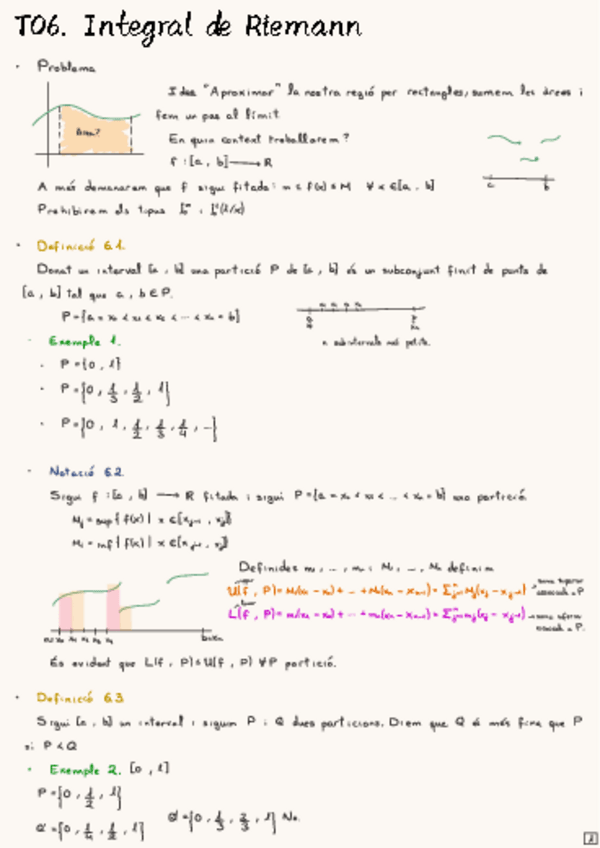 T06. Integral de Riemann
· Problema
Idea "Aproximar" la nostra regió per rectangles, sumem les àrees i
fem un pas al límit
Àrea?
En quin context treballarem?
f : [a , b] ⟶ R
a b
A més demanarem que f sigui fitada: m ≤ f(x) ≤ M ∀ x ∈ [a , b]
Prohibirem els tipus
· Definició 6.1.
Donat un interval [a , b] una partició P de [a , b] és un subconjunt finit de punts de
[a , b] tal que a , b ∈ P.
P = {a = x₀ < x₁ < x₂ < ... < xₙ = b}
n subintervals més petits.
· Exemple 1.
· P = {0 , 1}
· P = {0 , 1/3 , 1/2 , 1}
· P = {0 , 1 , 1/2 , 1/3 , 1/4 , ...}
· Notació 6.2
Sigui f : [a , b] ⟶ R fitada i sigui P = {a = x₀ < x₁ < ... < xₙ = b} una partició.
Mⱼ = sup{ f(x) | x ∈ [xⱼ₋₁ , xⱼ]}
mⱼ = inf{ f(x) | x ∈ [xⱼ₋₁ , xⱼ]}
Definides m₁ , ... , mₙ ; M₁ , ... , Mₙ definim
U(f , P) = M₁(x₁ - x₀) + ... + Mₙ(xₙ - xₙ₋₁) = Σⁿⱼ₌₁ Mⱼ(xⱼ - xⱼ₋₁) suma superior associada a P
L(f , P) = m₁(x₁ - x₀) + ... + mₙ(xₙ - xₙ₋₁) = Σⁿⱼ₌₁ mⱼ(xⱼ - xⱼ₋₁) suma inferior associada a P.
És evident que L(f , P) ≤ U(f , P) ∀ P partició.
· Definició 6.3
Sigui [a , b] un interval i siguin P i Q dues particions. Diem que Q és més fina que P
si P < Q
· Exemple 2. [0 , 1]
P = {0 , 1/2 , 1}
Q = {0 , 1/4 , 1/2 , 1} Q' = {0 , 1/3 , 2/3 , 1} No.
1